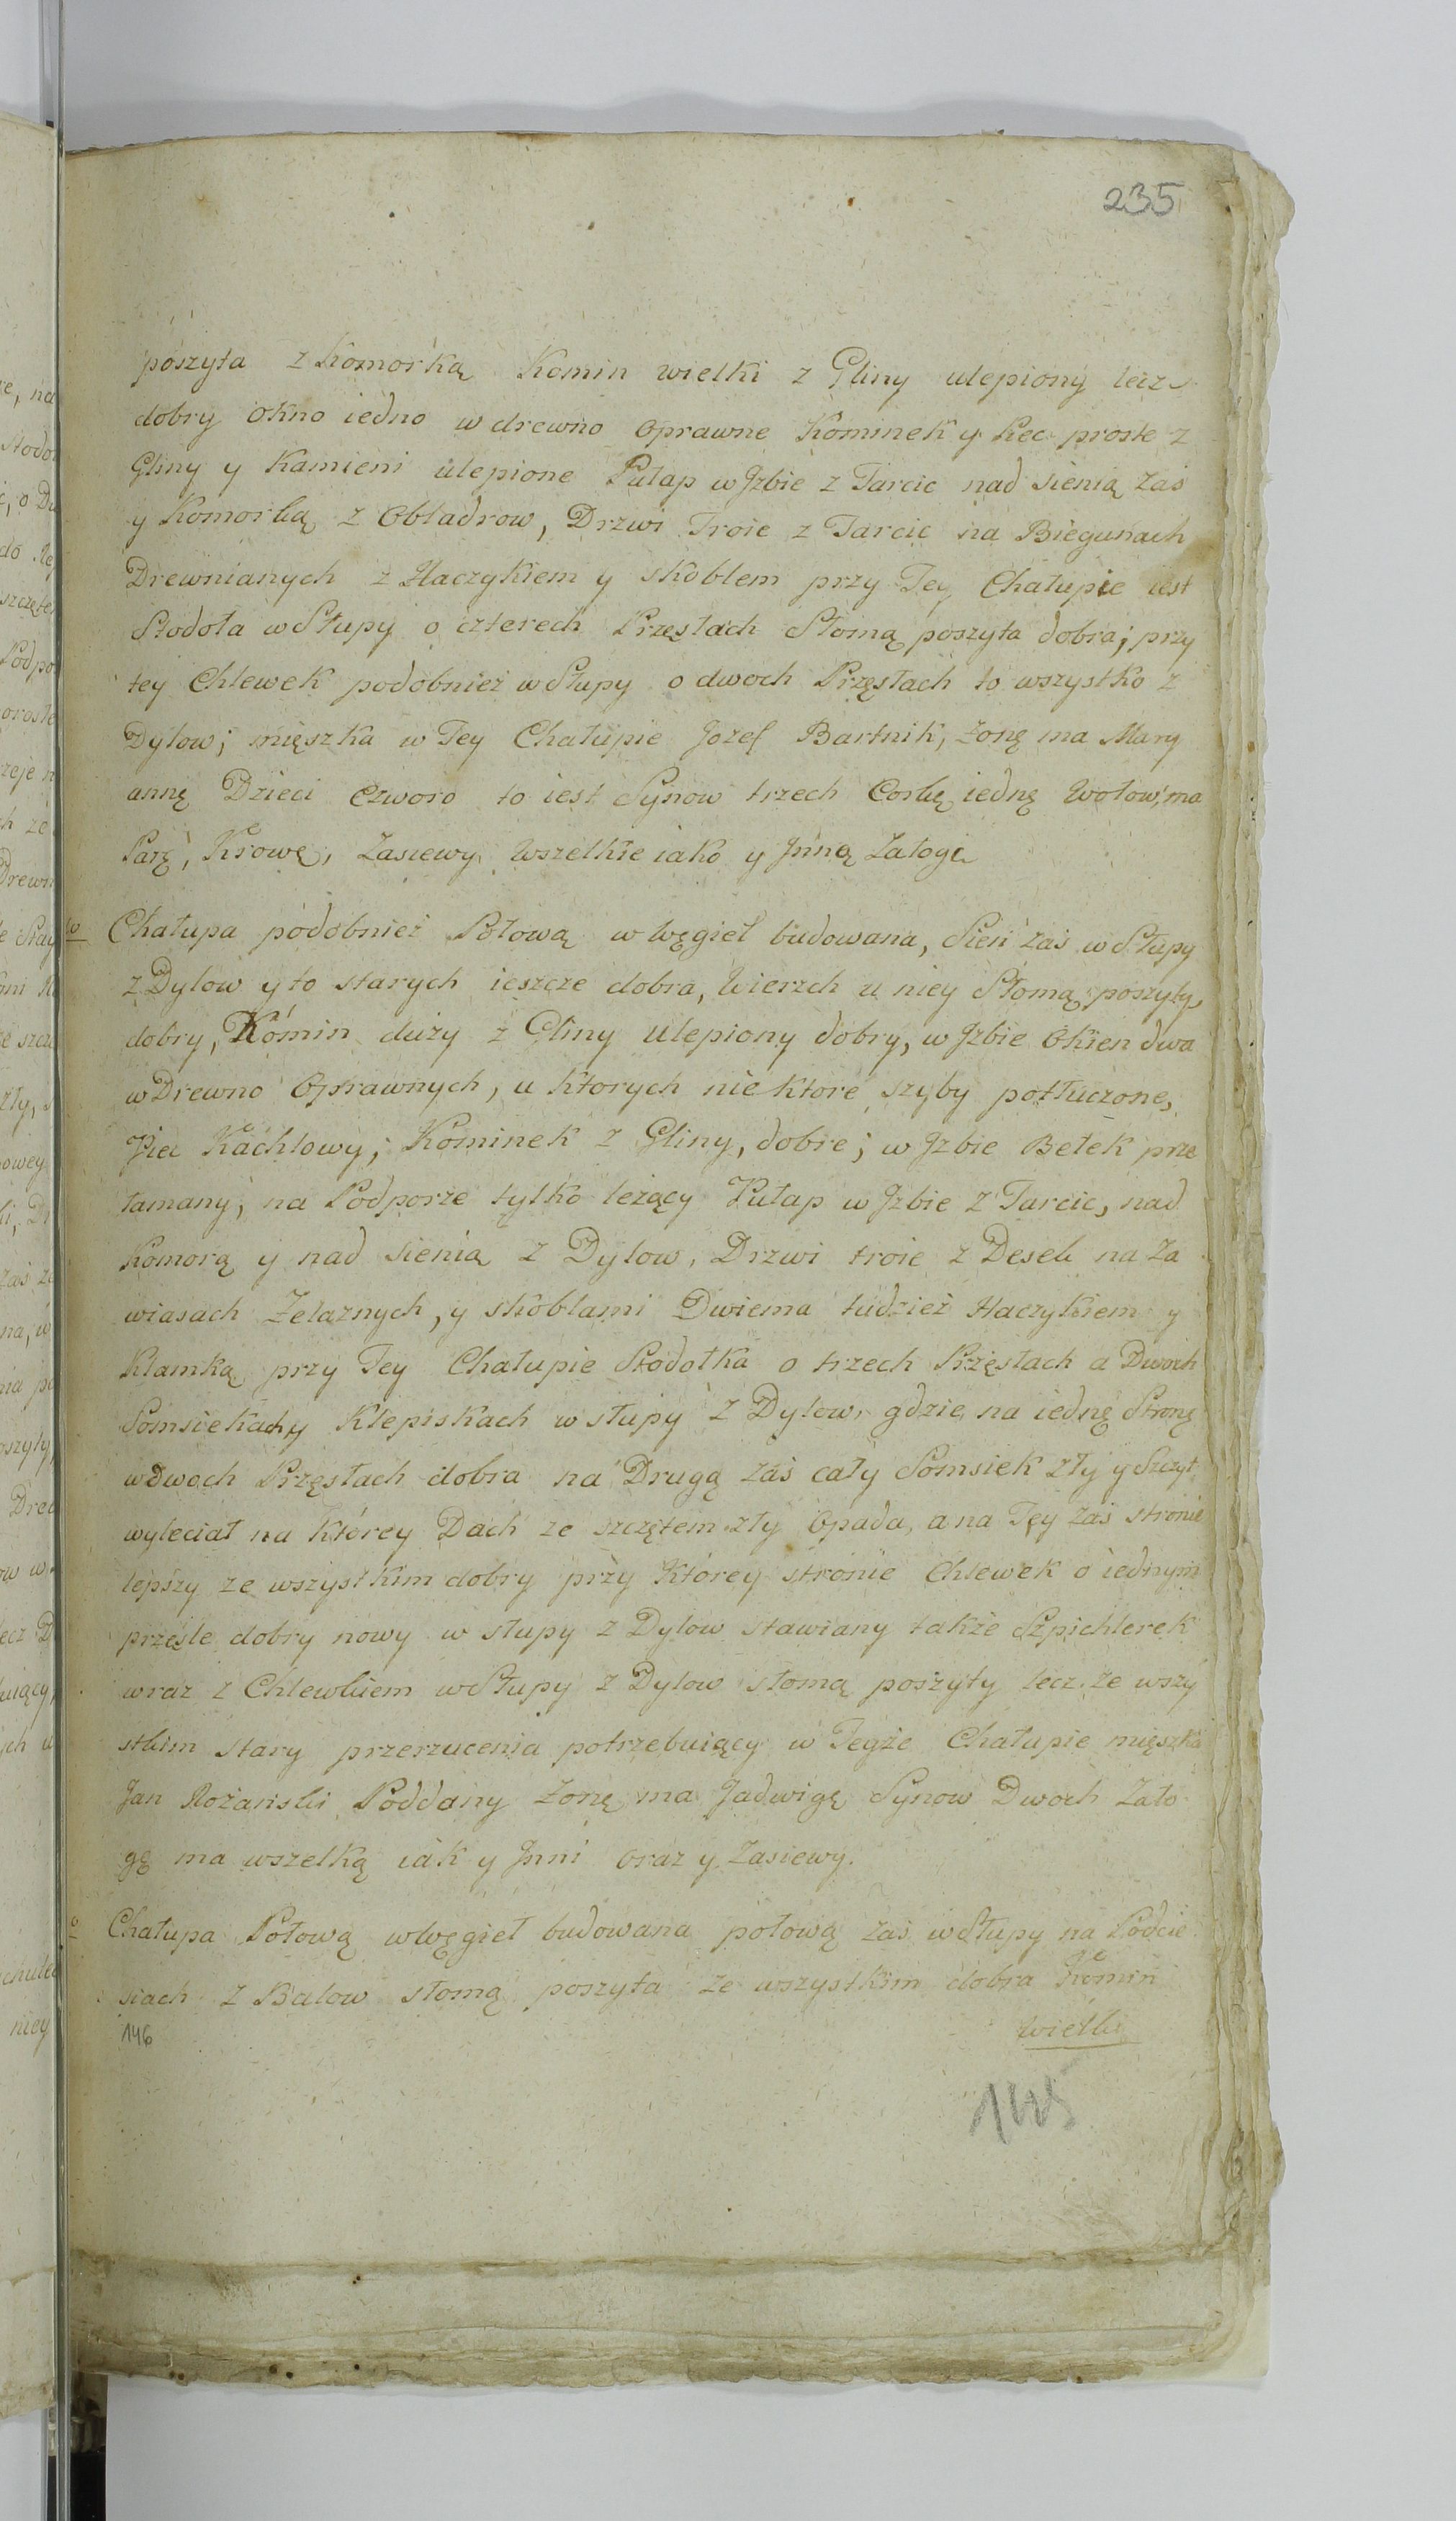 235
poszyta z Komorką Komin wielki z Gliny ulepiony lecz
dobry okno iedno w drewno oprawne Kominek y Piec proste z
Gliny y Kamieni ulepione Pułap w Jzbie z Tarcic nad sienią zaś
y Komorką z Obladrow, Drzwi Troie z Tarcic na Biegunach
Drewnianych z Haczykiem y skoblem przy Tey Chałupie iest
Stodoła w Słupy o czterech Przęsłach Słomą poszyta dobra; przy
tey Chlewek podobnież w Słupy o dwoch Przęsłach to wszystko z
Dylow; mięszka w Tey Chałupie Jozef Bartnik, żonę ma Mary
annę Dzieci czworo to iest Synow trzech Corkę iednę Wołow, ma
Parę, Krowę, Zasiewy wszelkie iako y Jnną Załogę
Chałupa podobnież Połową w węgieł budowana, Sień zaś w Słupy
z Dylow y to starych ieszcze dobra, Wierzch u niey Słomą poszyty
dobry, Komin duży z Gliny ulepiony dobry, w Jzbie Okien dwa
w Drewno Oprawnych, u ktorych nie ktore szyby potłuczone,
Piec Kachlowy, Kominek z Gliny, dobre; w Jzbie Belek prze
łamany, na Podporze tylko leżący Pułap w Jzbie z Tarcic, nad
Komorą y nad sienią z Dylow, Drzwi troie z Desek na Za
wiasach Żelaznych, y skoblami Dwiema tudzież Haczykiem y
Klamką przy Tey Chałupie Stodołka o trzech Przęsłach a Dwoch
Somsiekach y Klepiskach w słupy z Dylow, gdzie na iednę Stronę
w dwoch Przęsłach dobra na Drugą zaś cały Somsiek zły y Szczyt
wyleciał na którey Dach ze szczętem zły Opada, a na Tey zaś stronie
lepszy ze wszystkim dobry przy którey stronie Chlewek o iednym
przęśle dobry nowy w słupy z Dylow stawiany także Szpichlerek
wraz z Chlewkiem w Słupy z Dylow słomą poszyty lecz ze wszy
stkim stary przerzucenia potrzebuiący w Tegże Chałupie mięszka
Jan Rożański Poddany żonę ma Jadwigę Synow Dwoch Zało
gę ma wszelką iak y Jnni oraz y Zasiewy.
Chałupa Połową w węgieł budowana połową zaś w Słupy na Podcie
siach z Balow słomą poszyta ze wszystkim dobra Komin
146 wielki
145